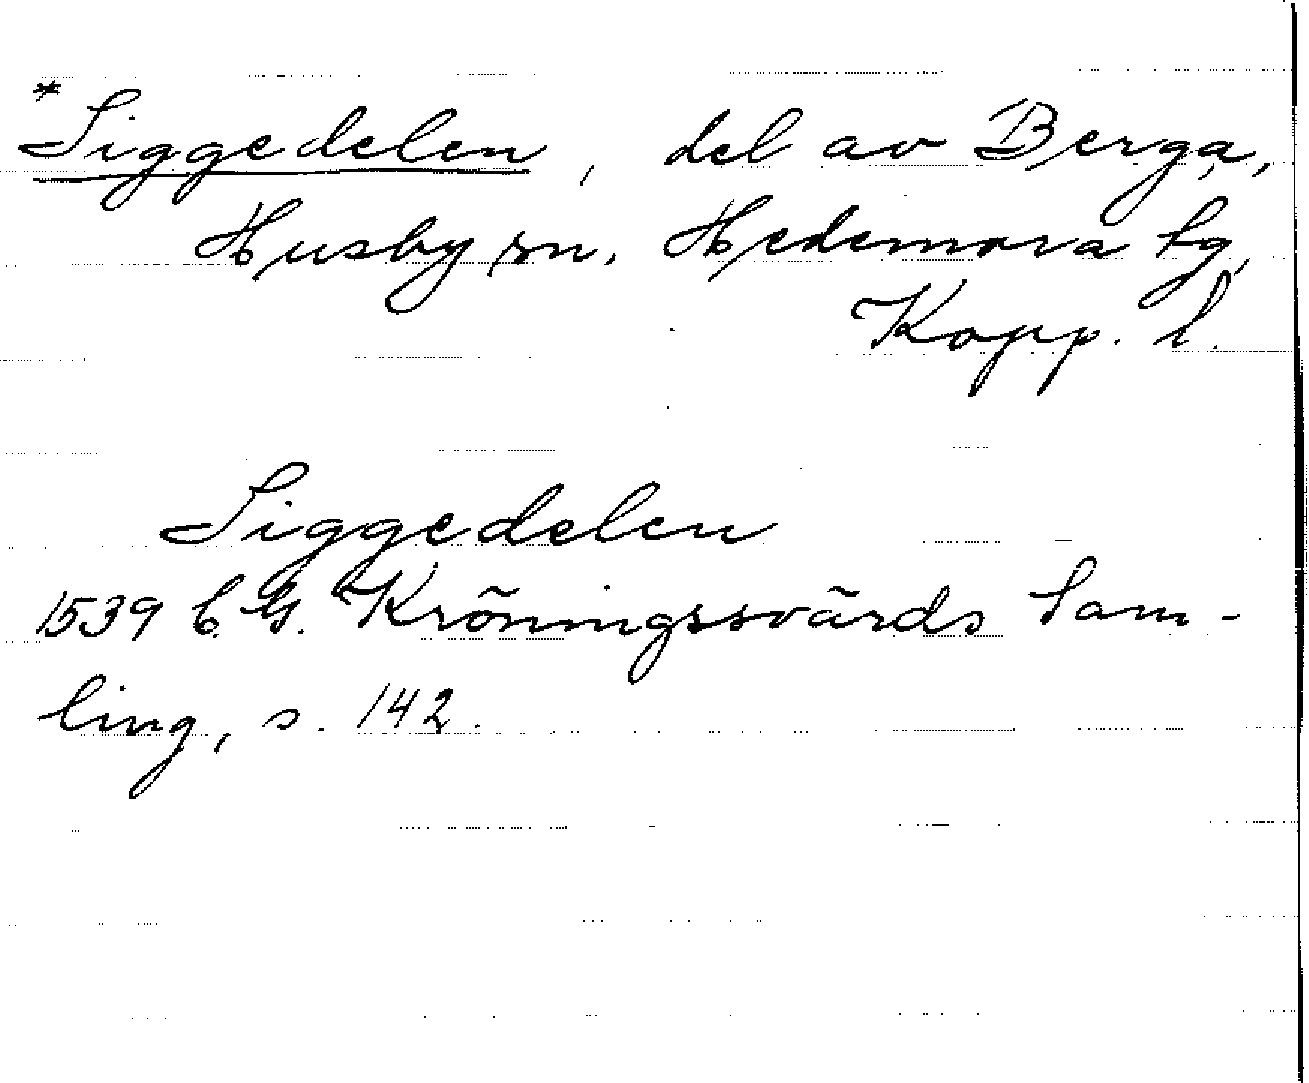 *Siggedelen, del av Berga,
Husby sn. Hedemora tg,
Kopp. l.
Siggedelen
1539 C.G. Kröningssvärds Sam-
ling, s. 142.